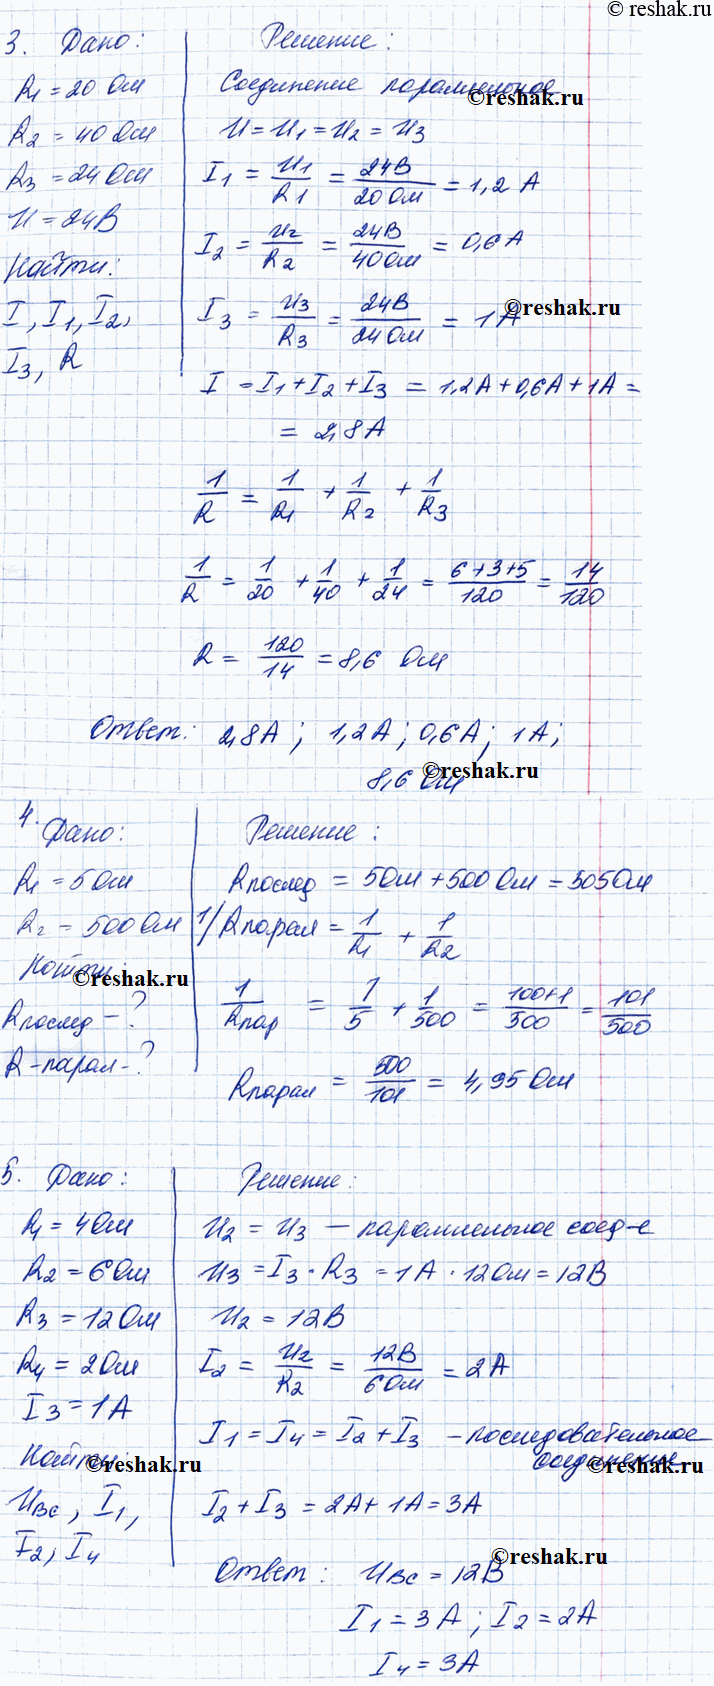 © reshak.ru
3. Дано:
R1 = 20 Ом
R2 = 40 Ом
R3 = 24 Ом
U = 24В
Найти:
I, I1, I2,
I3, R
Решение:
Соединение параллельное
©reshak.ru
U = U1 = U2 = U3
I1 = U1/R1 = 24В/20 Ом = 1,2 А
I2 = U2/R2 = 24В/40 Ом = 0,6 А
I3 = U3/R3 = 24В/24 Ом = 1 А
©reshak.ru
I = I1 + I2 + I3 = 1,2А + 0,6А + 1А =
= 2,8 А
1/R = 1/R1 + 1/R2 + 1/R3
1/R = 1/20 + 1/40 + 1/24 = 6+3+5/120 = 14/120
R = 120/14 = 8,6 Ом
Ответ: 2,8А; 1,2А; 0,6А; 1А;
8,6 Ом
©reshak.ru
4. Дано:
R1 = 5 Ом
R2 = 500 Ом
Найти:
©reshak.ru
Rпослед - ?
R-парал - ?
Решение:
Rпослед = 5 Ом + 500 Ом = 505 Ом
1/Rпарал = 1/R1 + 1/R2
1/Rпар = 1/5 + 1/500 = 100+1/500 = 101/500
Rпарал = 500/101 = 4,95 Ом
5. Дано:
R1 = 4 Ом
R2 = 6 Ом
R3 = 12 Ом
R4 = 2 Ом
I3 = 1 А
Найти:
©reshak.ru
UBC, I1,
I2, I4
Решение:
U2 = U3 – параллельное соед-е
U3 = I3 · R3 = 1А · 12 Ом = 12 В
U2 = 12В
I2 = U2/R2 = 12В/6 Ом = 2 А
I1 = I4 = I2 + I3 - последовательное
соединение
©reshak.ru
I2 + I3 = 2А + 1А = 3А
Ответ: UBC = 12В
©reshak.ru
I1 = 3 А; I2 = 2А
I4 = 3А